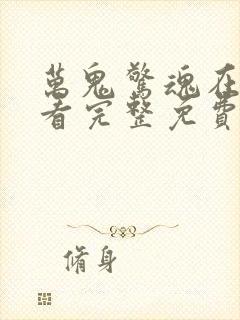 萬鬼驚魂在
看完整免費
脩身